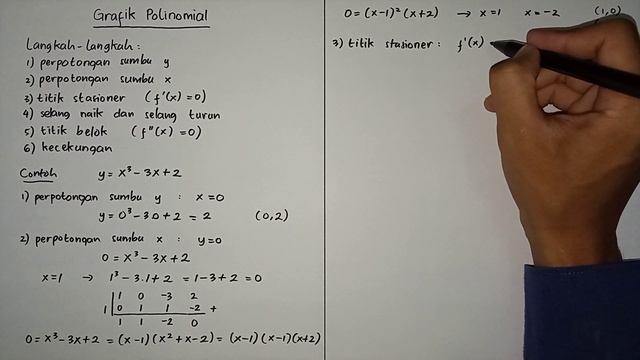 Grafik Polinomial
Langkah-langkah:
1) perpotongan sumbu y
2) perpotongan sumbu x
3) titik stasioner (f'(x) = 0)
4) selang naik dan selang turun
5) titik belok (f"(x) = 0)
6) kecekungan
Contoh y = x³ - 3x + 2
1) perpotongan sumbu y : x = 0
y = 0³ - 3.0 + 2 = 2 (0,2)
2) perpotongan sumbu x : y = 0
0 = x³ - 3x + 2
x = 1 → 1³ - 3.1 + 2 = 1 - 3 + 2 = 0
1 0 -3 2
1 0 1 1 -2 +
1 1 -2 0
0 = x³ - 3x + 2 = (x-1)(x² + x - 2) = (x-1)(x-1)(x+2)
0 = (x-1)² (x+2) → x = 1 x = -2 (1,0)
3) titik stasioner : f'(x)